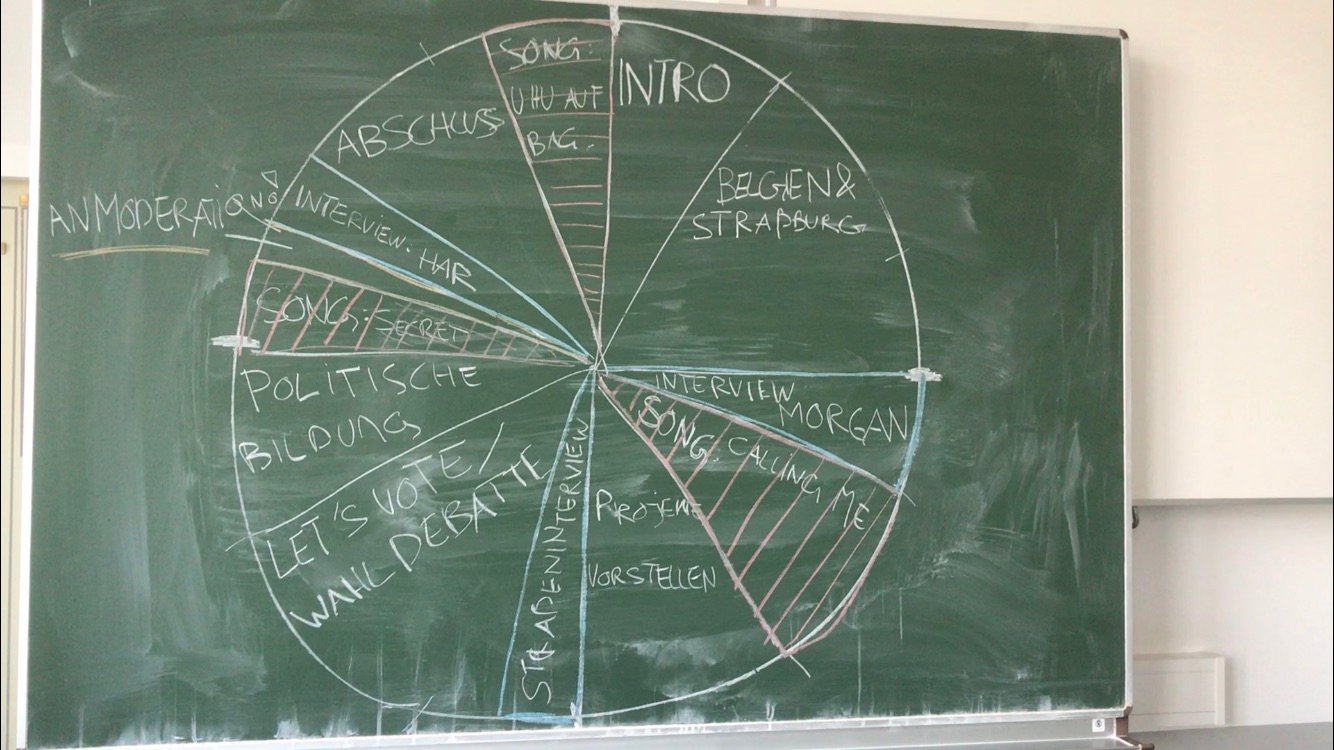 INTRO
BELGIEN &
STRAßBURG
INTERVIEW
MORGAN
SONG: CALLING ME
PROJEKTE
VORSTELLEN
STRAßENINTERVIEW
LET'S VOTE /
WAHLDEBATTE
POLITISCHE
BILDUNG
SONG: SECRET
ANMODERATION
INTERVIEW: HAR
ABSCHLUSS
SONG:
UHU AUF